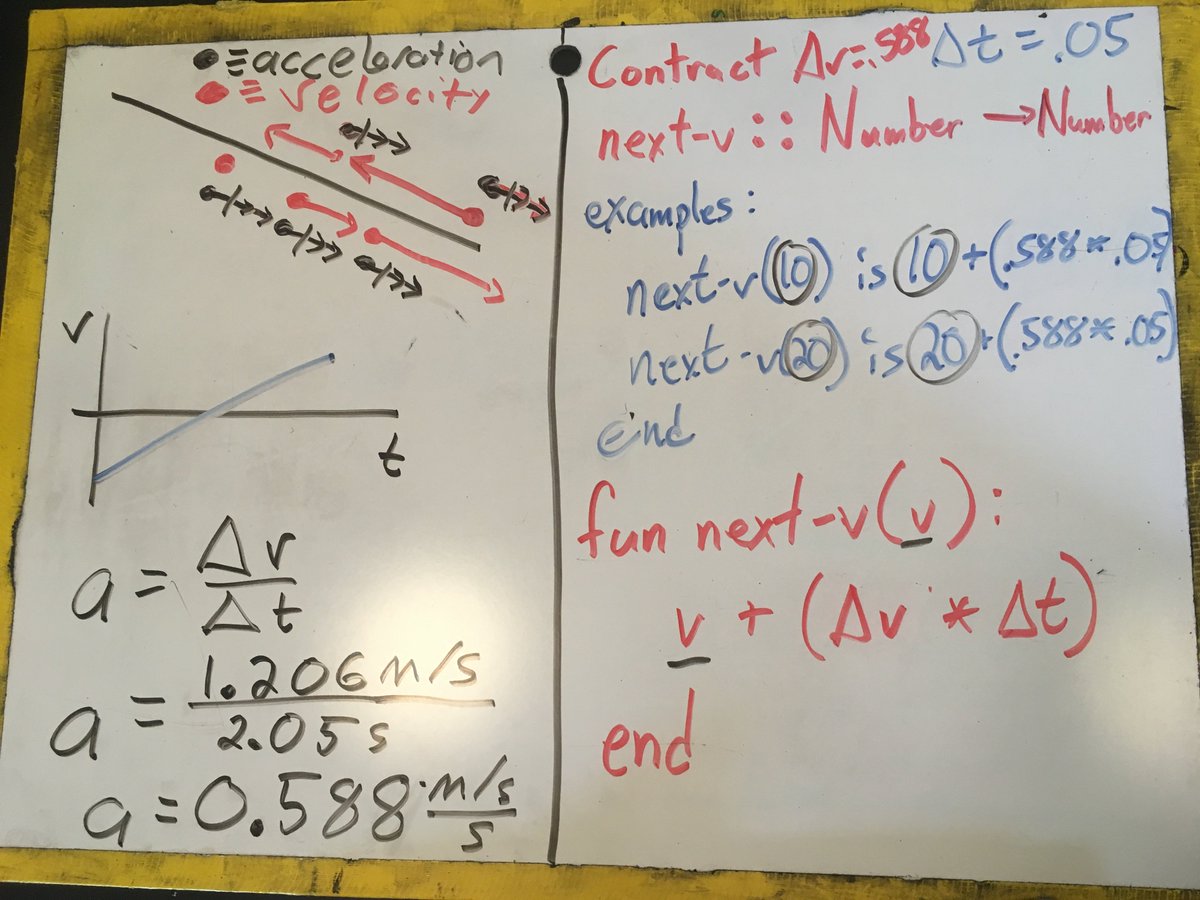 ●≡acceleration
●≡velocity
v
t
a = Δv/Δt
a = 1.206 m/s / 2.05 s
a = 0.588 m/s / s
Contract Δv=.588 Δt = .05
next-v :: Number → Number
examples:
next-v(10) is 10+(.588*.05)
next-v(20) is 20+(.588*.05)
end
fun next-v(v):
v + (Δv * Δt)
end